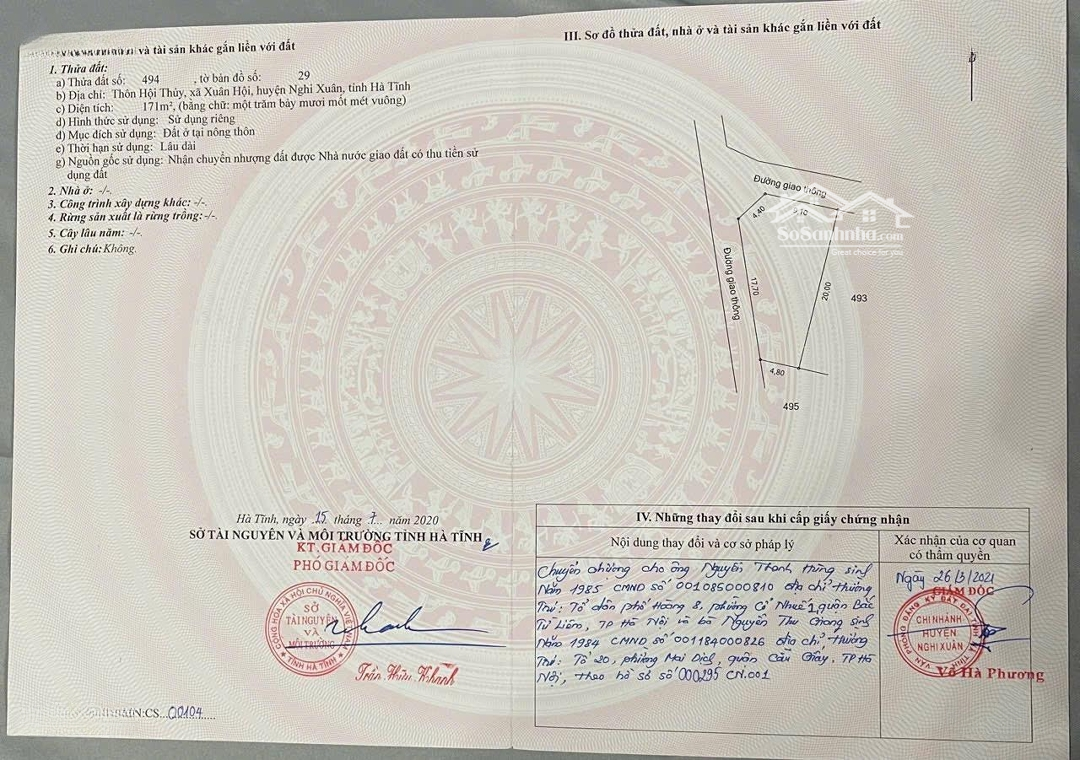 và tài sản khác gắn liền với đất
1. Thửa đất:
a) Thửa đất số: 494 , tờ bản đồ số: 29
b) Địa chỉ: Thôn Hội Thủy, xã Xuân Hội, huyện Nghi Xuân, tỉnh Hà Tĩnh
c) Diện tích: 171m², (bằng chữ: một trăm bảy mươi mốt mét vuông)
d) Hình thức sử dụng: Sử dụng riêng
đ) Mục đích sử dụng: Đất ở tại nông thôn
e) Thời hạn sử dụng: Lâu dài
g) Nguồn gốc sử dụng: Nhận chuyển nhượng đất được Nhà nước giao đất có thu tiền sử
dụng đất
2. Nhà ở: -/-.
3. Công trình xây dựng khác: -/-.
4. Rừng sản xuất là rừng trồng: -/-.
5. Cây lâu năm: -/-.
6. Ghi chú: Không.
Hà Tĩnh, ngày 15 tháng 7 năm 2020
SỞ TÀI NGUYÊN VÀ MÔI TRƯỜNG TỈNH HÀ TĨNH
KT.GIÁM ĐỐC
PHÓ GIÁM ĐỐC
CỘNG HÒA XÃ HỘI CHỦ NGHĨA VIỆT NAM
SỞ
TÀI NGUYÊN
VÀ
MÔI TRƯỜNG
TỈNH HÀ TĨNH
Trần Hữu Khanh
CS 00104
III. Sơ đồ thửa đất, nhà ở và tài sản khác gắn liền với đất
Đường giao thông
4,40
9,10
Đường giao thông
17,70
20,00
493
4,80
495
SoSanhnha.com
Great choice for you
IV. Những thay đổi sau khi cấp giấy chứng nhận
Nội dung thay đổi và cơ sở pháp lý
Xác nhận của cơ quan
có thẩm quyền
Chuyển nhượng cho ông Nguyễn Thanh Hưng sinh
năm 1985 CMND số 001085000810 địa chỉ thường
trú: Tổ dân phố Hoàng 8, phường Cổ Nhuế 1, quận Bắc
Từ Liêm, TP Hà Nội và bà Nguyễn Thu Giang sinh
năm 1984 CMND số 001184000826 địa chỉ thường
trú: Tổ 20, phường Mai Dịch, quận Cầu Giấy, TP Hà
Nội, theo hồ sơ số 000295 CN.001
Ngày 26/3/2021
GIÁM ĐỐC
VĂN PHÒNG ĐĂNG KÝ ĐẤT ĐAI TỈNH HÀ TĨNH
CHI NHÁNH
HUYỆN
NGHI XUÂN
Võ Hà Phương